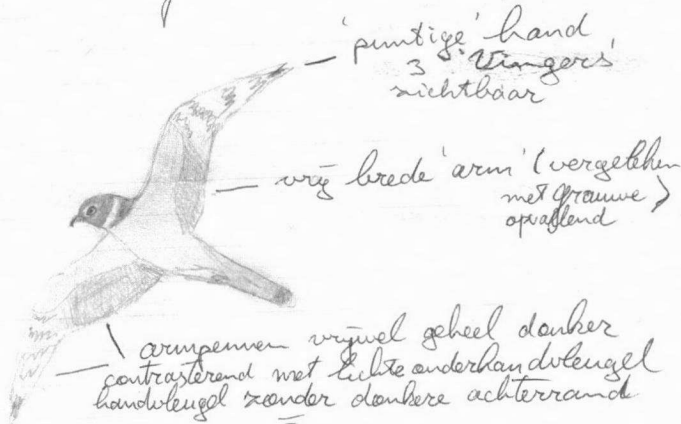 'puntige' hand
3 'Vingers'
zichtbaar
vrij brede 'arm' (vergeleken
met Grauwe)
opvallend
armpennen vrijwel geheel donker
contrasterend met lichte onderhandvleugel
handvleugel zonder donkere achterrand